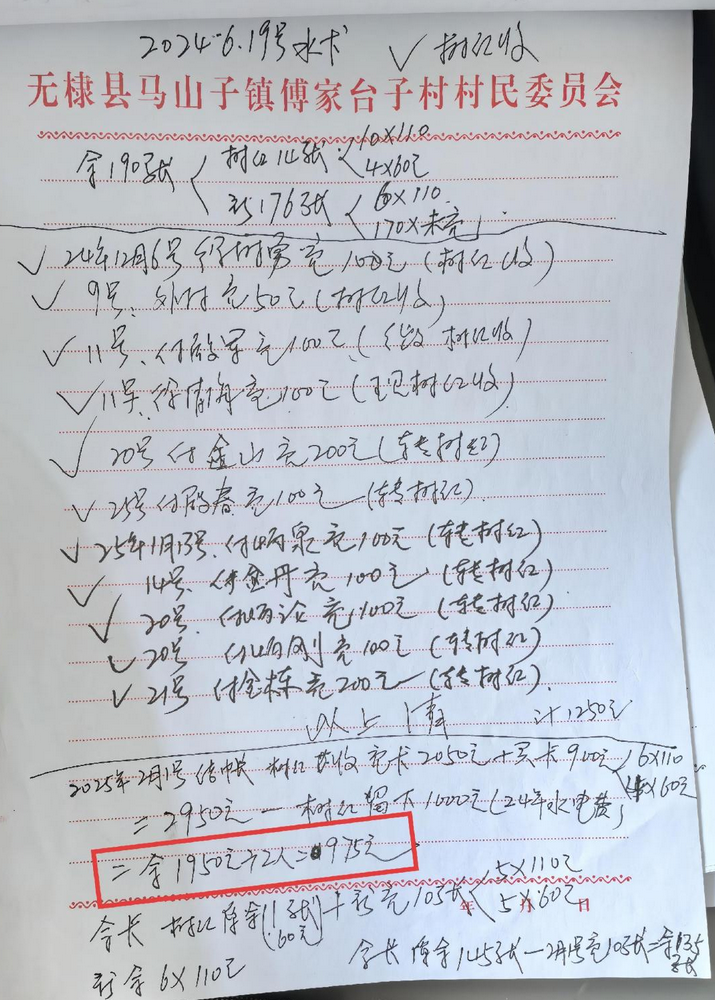 2024.6.19号水卡 ✓ 树红收
无棣县马山子镇傅家台子村村民委员会
余190张 树红14张 10×110
4×60元
新176张 6×110
170×未充
✓ 24年12月6号 树勇充100元(树红收)
✓ 9号、外村充50元(树红收)
✓ 11号、付殿军充100元(树红收)
✓ 11号、徐清海充100元(树红收)
✓ 20号付金山充200元(转树红)
✓ 25号付殿春充100元(转树红)
✓ 25年1月13号、付炳泉充100元(转树红)
✓ 14号、付金丹充100元(转树红)
✓ 20号、付炳论充100元(转树红)
✓ 20号、付炳刚充100元(转树红)
✓ 21号付金栋充200元(转树红)
以上清 计1250元
2025年2月1号结帐 树红共收充卡2050元+买卡900元 6×110
4×60元
=2950元-树红留下1000元(24年水电费)
=余1950元÷2人=975元
年 月 日
会长 树红库余(1张60元)+新充10张 5×110元
5×60元
新余6×110元
会长 库余145张-2月1号充10张=余135张